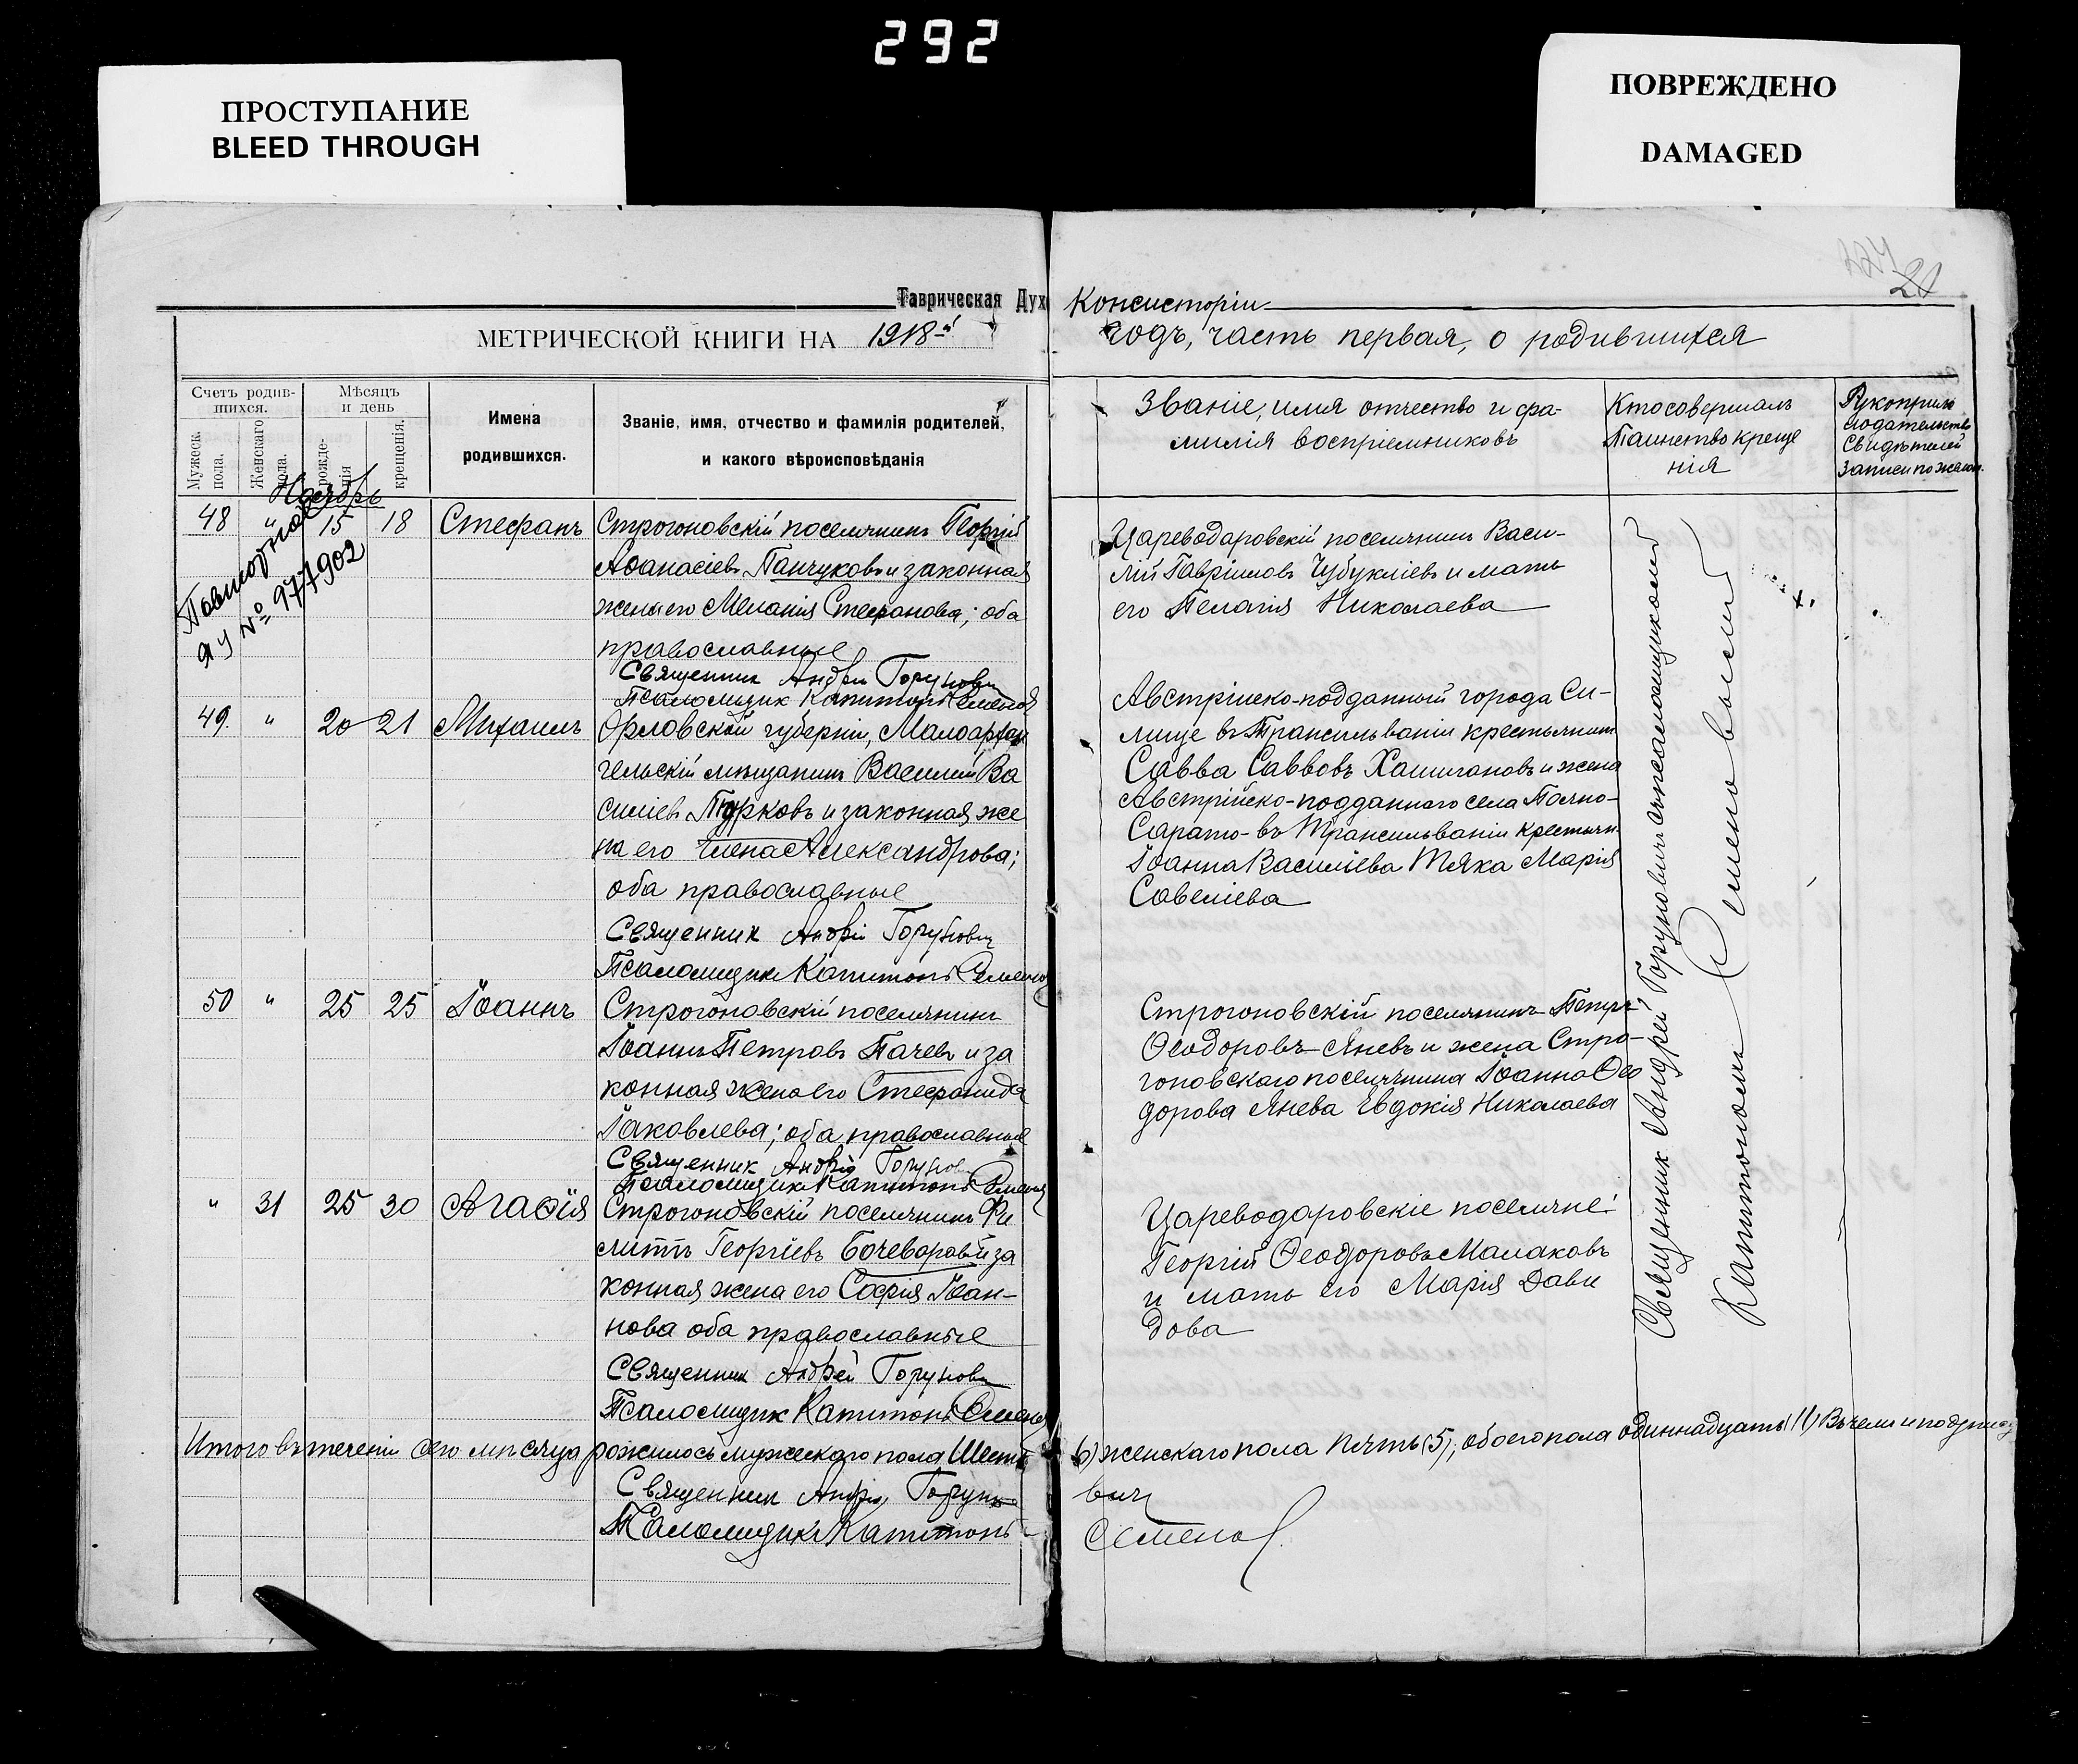 292
ПРОСТУПАНИЕ
BLEED THROUGH
ПОВРЕЖДЕНО
DAMAGED
Таврическая Дух Консисторіи
МЕТРИЧЕСКОЙ КНИГИ НА 1918-й
годъ, часть первая, о родившихся
Счетъ родив-
шихся.
Мужеск. пола.
Женскаго пола.
Мѣсяцъ
и день
рожде-
нія
крещенія.
Имена
родившихся.
Званіе, имя, отчество и фамилія родителей,
и какого вѣроисповѣданія
Званіе, имя отчество и фа-
милія воспріемниковъ
Кто совершалъ
Таинство креще
нія
Рукоприкла
Свидѣтелей
записи по желан.
Ноябрь
№ 977902
48 " 15 18 Стефанъ
Строгоновскій поселянинъ Георгій
Аѳанасіевъ Панчуковъ и законная
жена его Меланія Стефанова; оба
православные
Священник Андрей Горунович
Псаломщик Капитонъ Семенов
Цареводаровскій поселянинъ Васи-
лій Гавріиловъ Чубукліевъ и мать
его Пелагія Николаева
49. " 20 21 Михаилъ
Орловской губерніи, Малоархан
гельскій мѣщанинъ Василій Ва
силіевъ Турковъ и законная же
на его Елена Александрова;
оба православные
Священник Андрей Горунович
Псаломщик Капитонъ Семенов
Австрійско-подданный города Си-
лище въ Трансильваніи крестьянин
Савва Саввовъ Хашигановъ и жена
Австрійско-подданнаго села Пояно-
Сарато- въ Трансильваніи крестьян.
Іоанна Василіева Тяка Марія
Савеліева
50 " 25 25 Іоаннъ
Строгоновскій поселянинъ
Іоаннъ Петровъ Пачевъ и за
конная жена его Стефанида
Іаковлева; оба православные
Священник Андрей Горунович
Псаломщик Капитонъ Семенов
Строгоновскій поселянинъ Петръ
Ѳеодоровъ Яневъ и жена Стро-
гоновскаго поселянина Іоанна Ѳео
дорова Янева Евдокія Николаева
" 31 25 30 Агаѳія
Строгоновскій поселянинъ Фи
липпъ Георгіевъ Бочеваровъ и за
конная жена его Софія Іоан-
нова оба православные
Священник Андрей Горунович
Псаломщик Капитонъ Семенов
Цареводаровскіе поселяне:
Георгій Ѳеодоровъ Малаковъ
и мать его Марія Дави
дова
Священник Андрей Горунович съ псаломщикомъ
Капитономъ Семеновымъ
Итого въ теченіи сего мѣсяца родилось мужескаго пола Шесть 6) женскаго пола Пять (5); обоего пола одиннадцать (11) Въ чемъ и подпис
Священник Андрей Горуно вич
Псаломщикъ Капитонъ Семенов